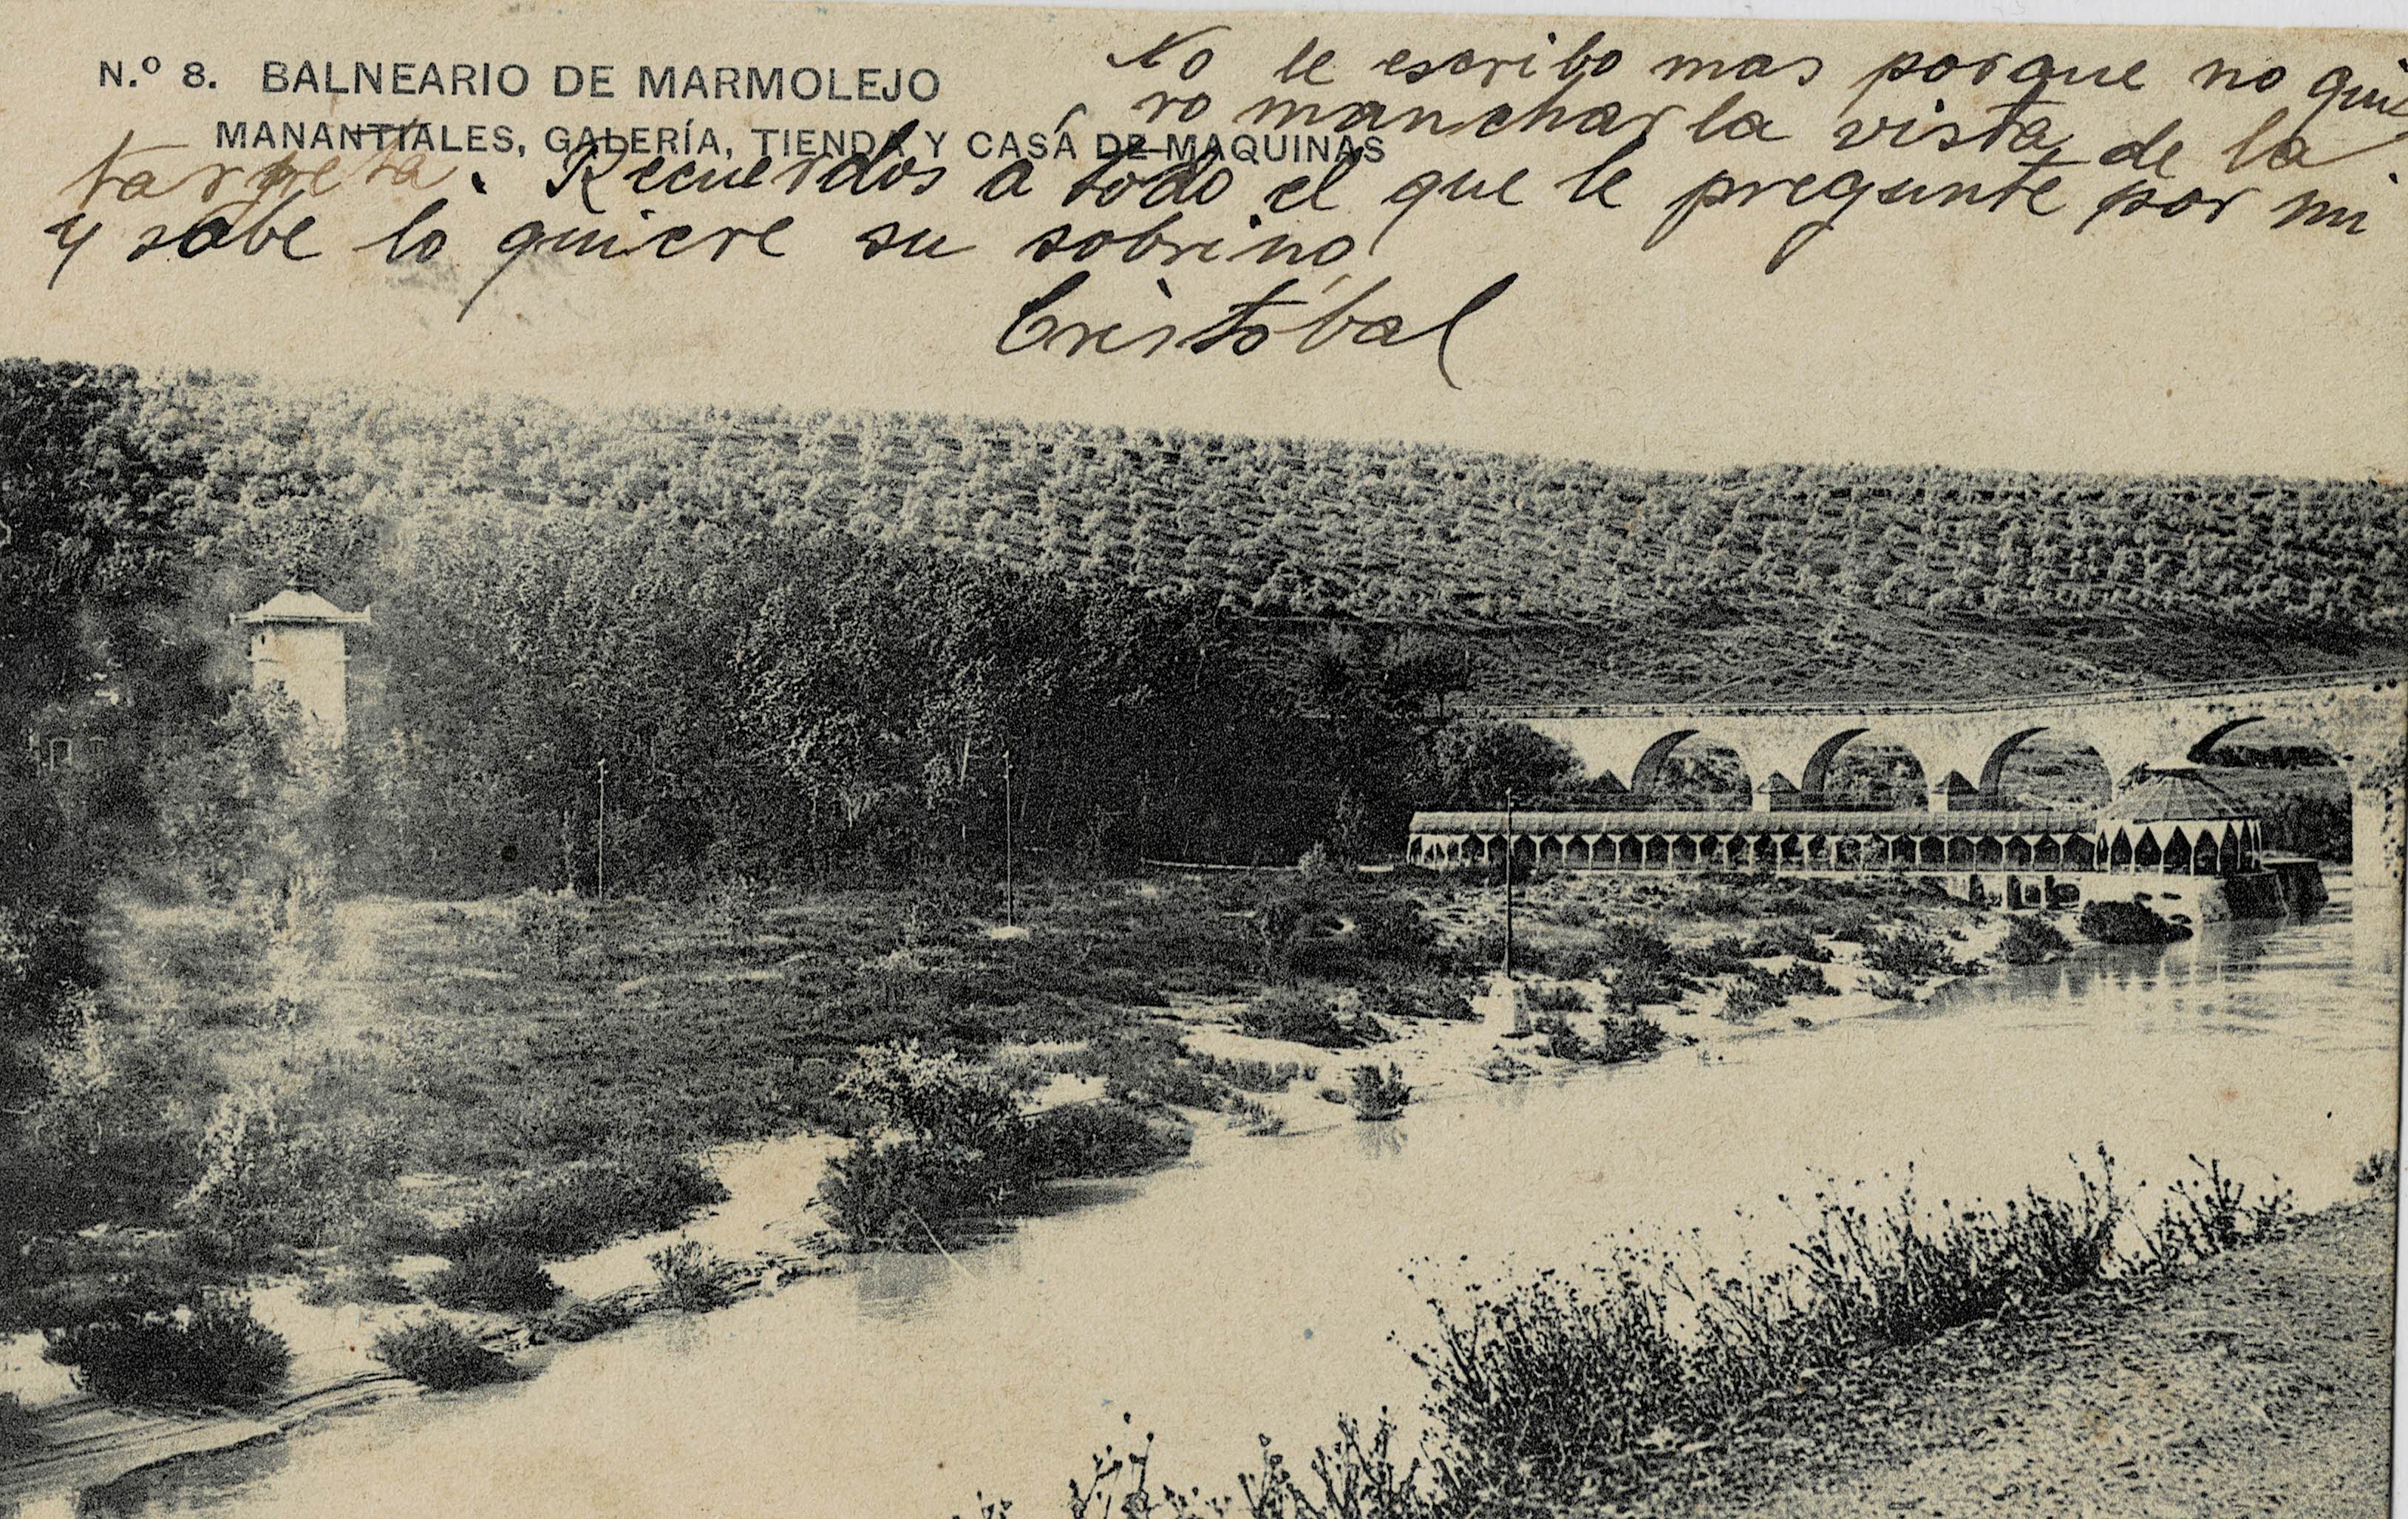 N.º 8. BALNEARIO DE MARMOLEJO
MANANTIALES, GALERÍA, TIENDA Y CASA DE MAQUINAS
No le escribo mas porque no quie
ro manchar la vista de la
tarjeta. Recuerdos a todo el que le pregunte por mi
y sabe lo quiere su sobrino
Cristóbal